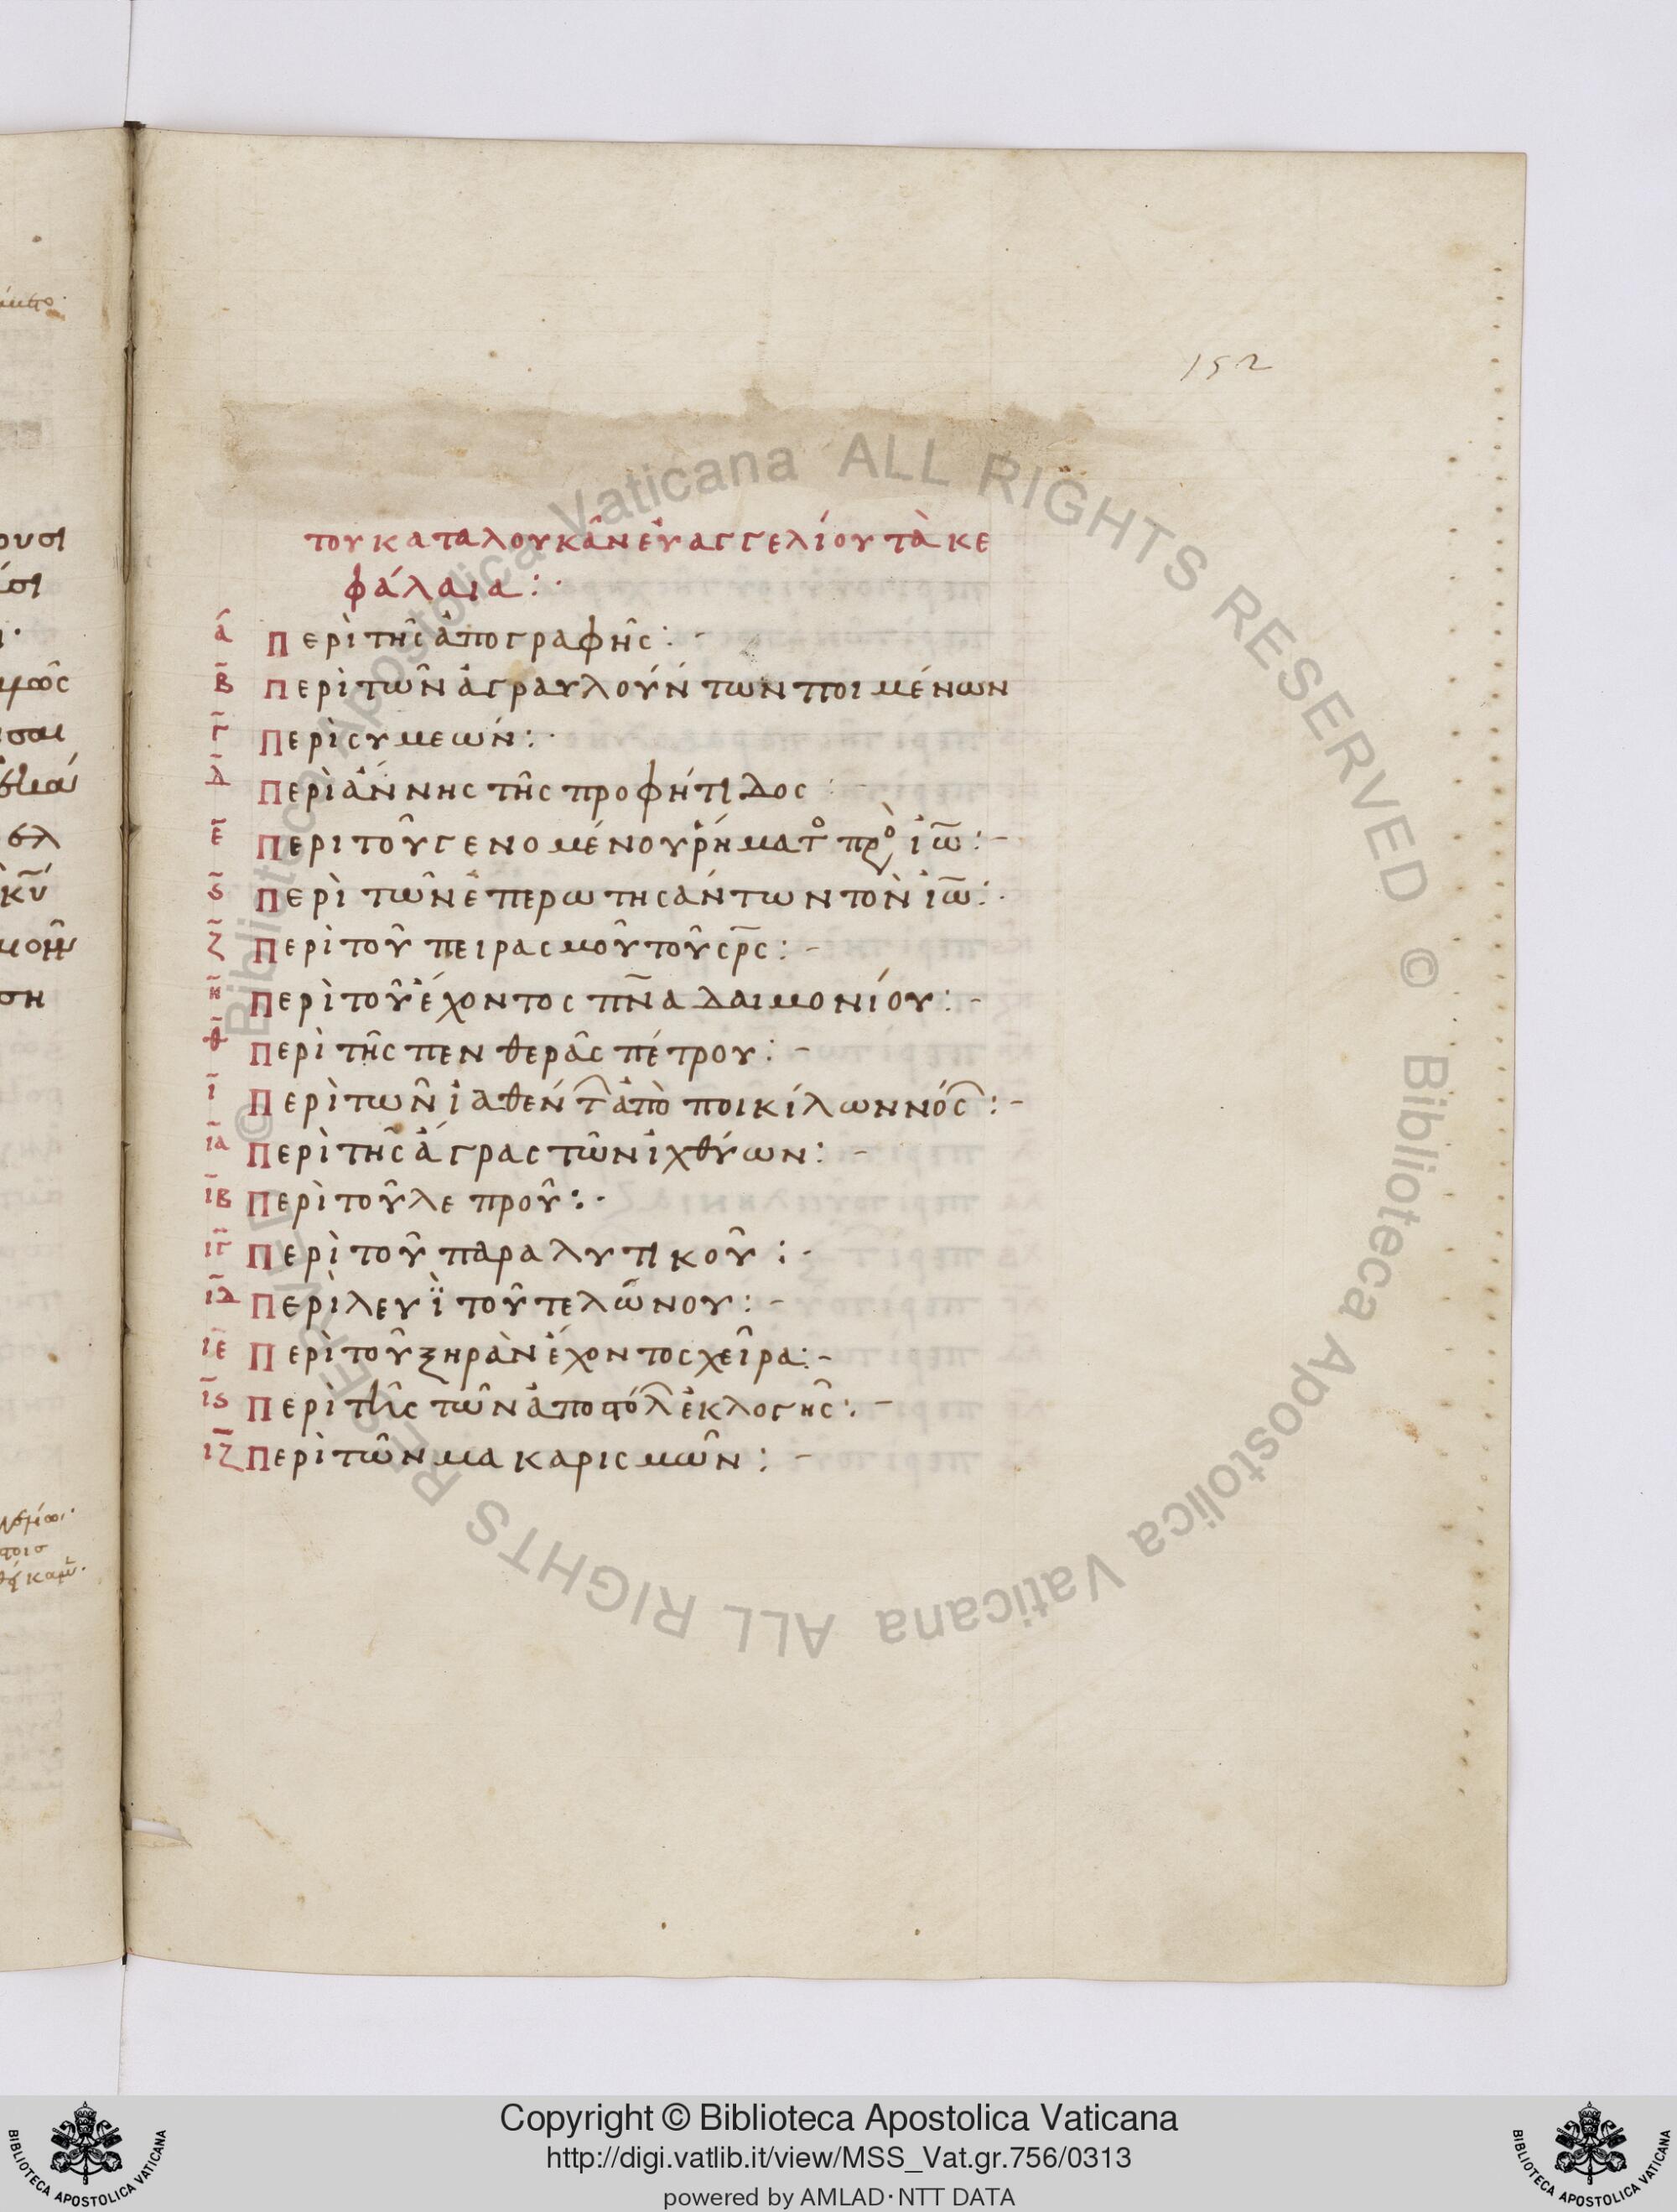 152
του κατα λουκᾶν εὐαγγελίου τὰ κε
φάλαια :·
ά Περὶ τῆς ἀπογραφῆς :-
β̄ Περὶ τῶν ἀγραυλούντων ποιμένων
γ̄ Περὶ συμεών :·
δ̄ Περὶ ἄννης τῆς προφήτιδος :-
ε̄ Περι τοῦ γενομένου ῥήματο πρὸ ἰω̄ :-
ς̄ Περὶ τῶν ἐπερωτησάντων τὸν ἰω̄ :·
ζ̄ Περὶ τοῦ πειρασμοῦ τοῦ σρ̄ς :-
η̄ Περὶ τοῦ ἔχοντος πν̄α δαιμονίου :-
θ̄ Περὶ τῆς πενθερᾶς πέτρου :-
ῑ Περὶ τῶν ἰαθέντ ἀπὸ ποικίλων νόσ :-
ιᾱ Περὶ τῆς ἄγρας τῶν ἰχθύων :-
ιβ̄ Περὶ τοῦ λεπροῦ :·
ιγ̄ Περὶ τοῦ παραλυτικοῦ :-
ιδ̄ Περὶ λευῒ τοῦ τελώνου :-
ιε̄ Περὶ τοῦ ξηρὰν ἔχοντος χεῖρα :-
ις̄ Περὶ τῆς τῶν ἀποστόλ ἐκλογῆς :-
ιζ̄ Περὶ τῶν μακαρισμῶν :-
© Biblioteca Apostolica Vaticana ALL RIGHTS RESERVED © Biblioteca Apostolica Vaticana ALL RIGHTS RESERVED
Copyright © Biblioteca Apostolica Vaticana
http://digi.vatlib.it/view/MSS_Vat.gr.756/0313
powered by AMLAD·NTT DATA
BIBLIOTECA APOSTOLICA VATICANA
BIBLIOTECA APOSTOLICA VATICANA